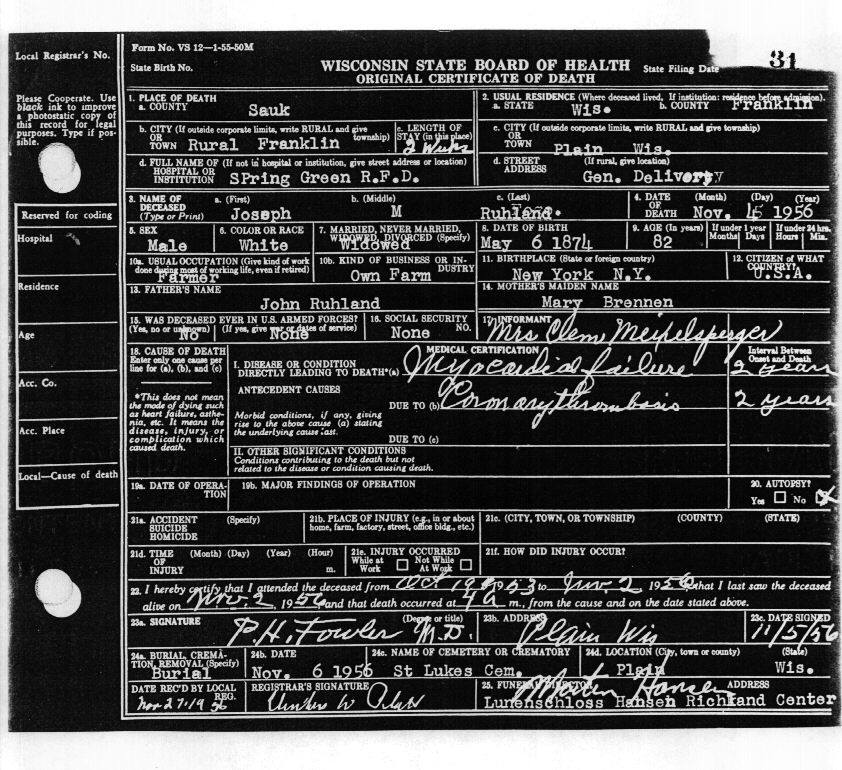 Form No. VS 12—1-55-50M
State Birth No.
WISCONSIN STATE BOARD OF HEALTH
ORIGINAL CERTIFICATE OF DEATH
State Filing Date 31
Local Registrar's No.
Please Cooperate. Use
black ink to improve
a photostatic copy of
this record for legal
purposes. Type if pos-
sible.
Reserved for coding
Hospital
Residence
Age
Acc. Co.
Acc. Place
Local—Cause of death
1. PLACE OF DEATH
a. COUNTY Sauk
2. USUAL RESIDENCE (Where deceased lived, If institution: residence before admission).
a. STATE Wis. b. COUNTY Franklin
b. CITY (If outside corporate limits, write RURAL and give township)
OR TOWN Rural Franklin
c. LENGTH OF STAY (in this place) 2 Weeks
c. CITY (If outside corporate limits, write RURAL and give township)
OR TOWN Plain Wis.
d. FULL NAME OF (If not in hospital or institution, give street address or location)
HOSPITAL OR INSTITUTION SPring Green R.F.D.
d. STREET ADDRESS (If rural, give location)
Gen. Delivery
3. NAME OF DECEASED (Type or Print)
a. (First) Joseph
b. (Middle) M
c. (Last) Ruhland
4. DATE OF DEATH (Month) (Day) (Year)
Nov. 1956
5. SEX Male
6. COLOR OR RACE White
7. MARRIED, NEVER MARRIED, WIDOWED, DIVORCED (Specify) Widowed
8. DATE OF BIRTH May 6 1874
9. AGE (In years) 82
If under 1 year Months Days
If under 24 hrs. Hours Min.
10a. USUAL OCCUPATION (Give kind of work done during most of working life, even if retired) Farmer
10b. KIND OF BUSINESS OR INDUSTRY Own Farm
11. BIRTHPLACE (State or foreign country) New York N.Y.
12. CITIZEN OF WHAT COUNTRY? U.S.A.
13. FATHER'S NAME John Ruhland
14. MOTHER'S MAIDEN NAME Mary Brennen
15. WAS DECEASED EVER IN U.S. ARMED FORCES?
(Yes, no or unknown) No (If yes, give war or dates of service) None
16. SOCIAL SECURITY NO. None
17. INFORMANT Mrs Clem Meixelsperger
18. CAUSE OF DEATH
Enter only one cause per line for (a), (b), and (c)
*This does not mean
the mode of dying such
as heart failure, asthe-
nia, etc. It means the
disease, injury, or
complication which
caused death.
MEDICAL CERTIFICATION
Interval Between Onset and Death
I. DISEASE OR CONDITION
DIRECTLY LEADING TO DEATH*(a) Myocardial failure 2 years
ANTECEDENT CAUSES
DUE TO (b) Coronary thrombosis 2 years
Morbid conditions, if any, giving
rise to the above cause (a) stating
the underlying cause last.
DUE TO (c)
II. OTHER SIGNIFICANT CONDITIONS
Conditions contributing to the death but not
related to the disease or condition causing death.
19a. DATE OF OPERATION
19b. MAJOR FINDINGS OF OPERATION
20. AUTOPSY?
Yes No X
21a. ACCIDENT SUICIDE HOMICIDE (Specify)
21b. PLACE OF INJURY (e.g., in or about home, farm, factory, street, office bldg., etc.)
21c. (CITY, TOWN, OR TOWNSHIP) (COUNTY) (STATE)
21d. TIME OF INJURY (Month) (Day) (Year) (Hour) m.
21e. INJURY OCCURRED
While at Work Not While At Work
21f. HOW DID INJURY OCCUR?
22. I hereby certify that I attended the deceased from Oct 1953 to Nov. 2 1956 that I last saw the deceased
alive on Nov. 2 1956 and that death occurred at 4 a m., from the cause and on the date stated above.
23a. SIGNATURE (Degree or title) P.H. Fowler M.D.
23b. ADDRESS Plain Wis
23c. DATE SIGNED 11/5/56
24a. BURIAL, CREMATION, REMOVAL (Specify) Burial
24b. DATE Nov. 6 1956
24c. NAME OF CEMETERY OR CREMATORY St Lukes Cem.
24d. LOCATION (City, town or county) (State) Plain Wis.
DATE REC'D BY LOCAL REG. Nov 27-19 56
REGISTRAR'S SIGNATURE
25. FUNERAL DIRECTOR Martin Hansen ADDRESS
Lunenschloss Hansen Richland Center